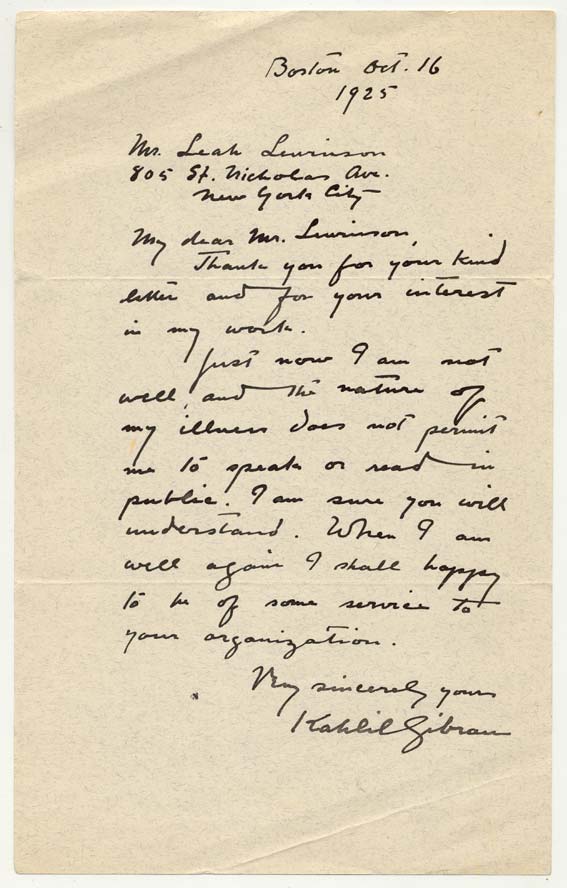 Boston Oct. 16
1925
Mr. Leah Lewinson
805 St. Nicholas Ave.
New York City
My dear Mr. Lewinson,
Thank you for your kind
letter and for your interest
in my work.
Just now I am not
well, and the nature of
my illness does not permit
me to speak or read in
public. I am sure you will
understand. When I am
well again I shall happy
to be of some service to
your organization.
Very sincerely yours
Kahlil Gibran